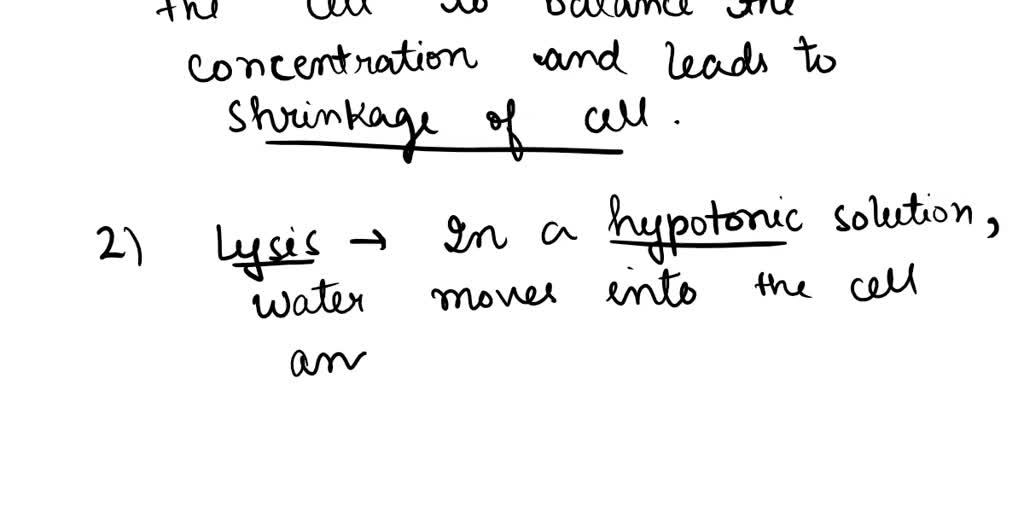 the cell to balance the
concentration and leads to
shrinkage of cell.
2) Lysis → In a hypotonic solution,
water moves into the cell
an